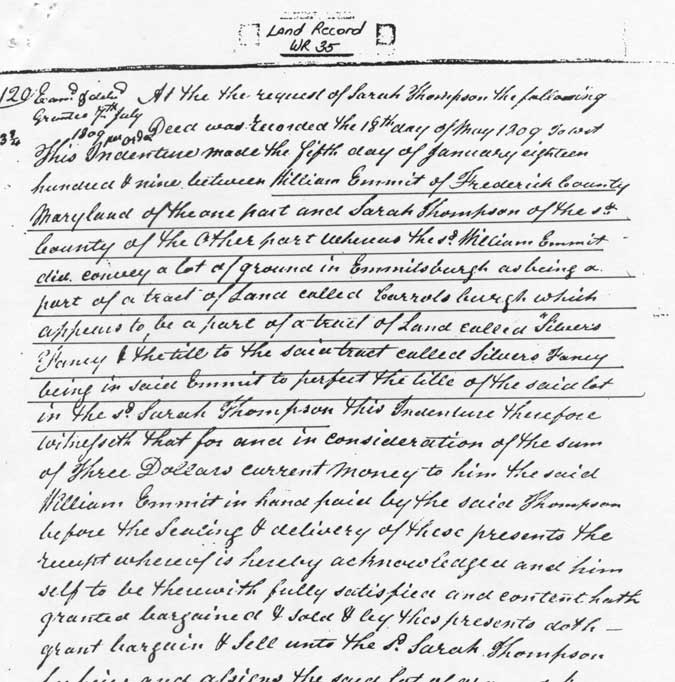 Land Record
WR 35
120 Examd & delid At the the request of Sarah Thompson the following
Grantee 7th July
1809 per order Deed was recorded the 18th day of May 1809 to wit
3 3/4
This Indenture made the fifth day of January eighteen
hundred & nine between William Emmit of Frederick County
Maryland of the one part and Sarah Thompson of the sd.
County of the Other part Whereas the sd. William Emmit
did convey a lot of ground in Emmitsburgh as being a
part of a tract of Land called Carrolsburgh which
appears to be a part of a tract of Land called "Silvers
Fancy & the till to the said tract called Silvers Fancy
being in said Emmit to perfect the title of the said lot
in the sd. Sarah Thompson this Indenture therefore
witnesseth that for and in consideration of the sum
of Three Dollars current money to him the said
William Emmit in hand paid by the said Thompson
before the Sealing & delivery of these presents the
receipt whereof is hereby acknowledged and him
self to be therewith fully satisfied and content hath
granted bargained & sold & by thes presents doth
grant bargain & Sell unto the sd. Sarah Thompson
her heirs and assigns the said lot of ground